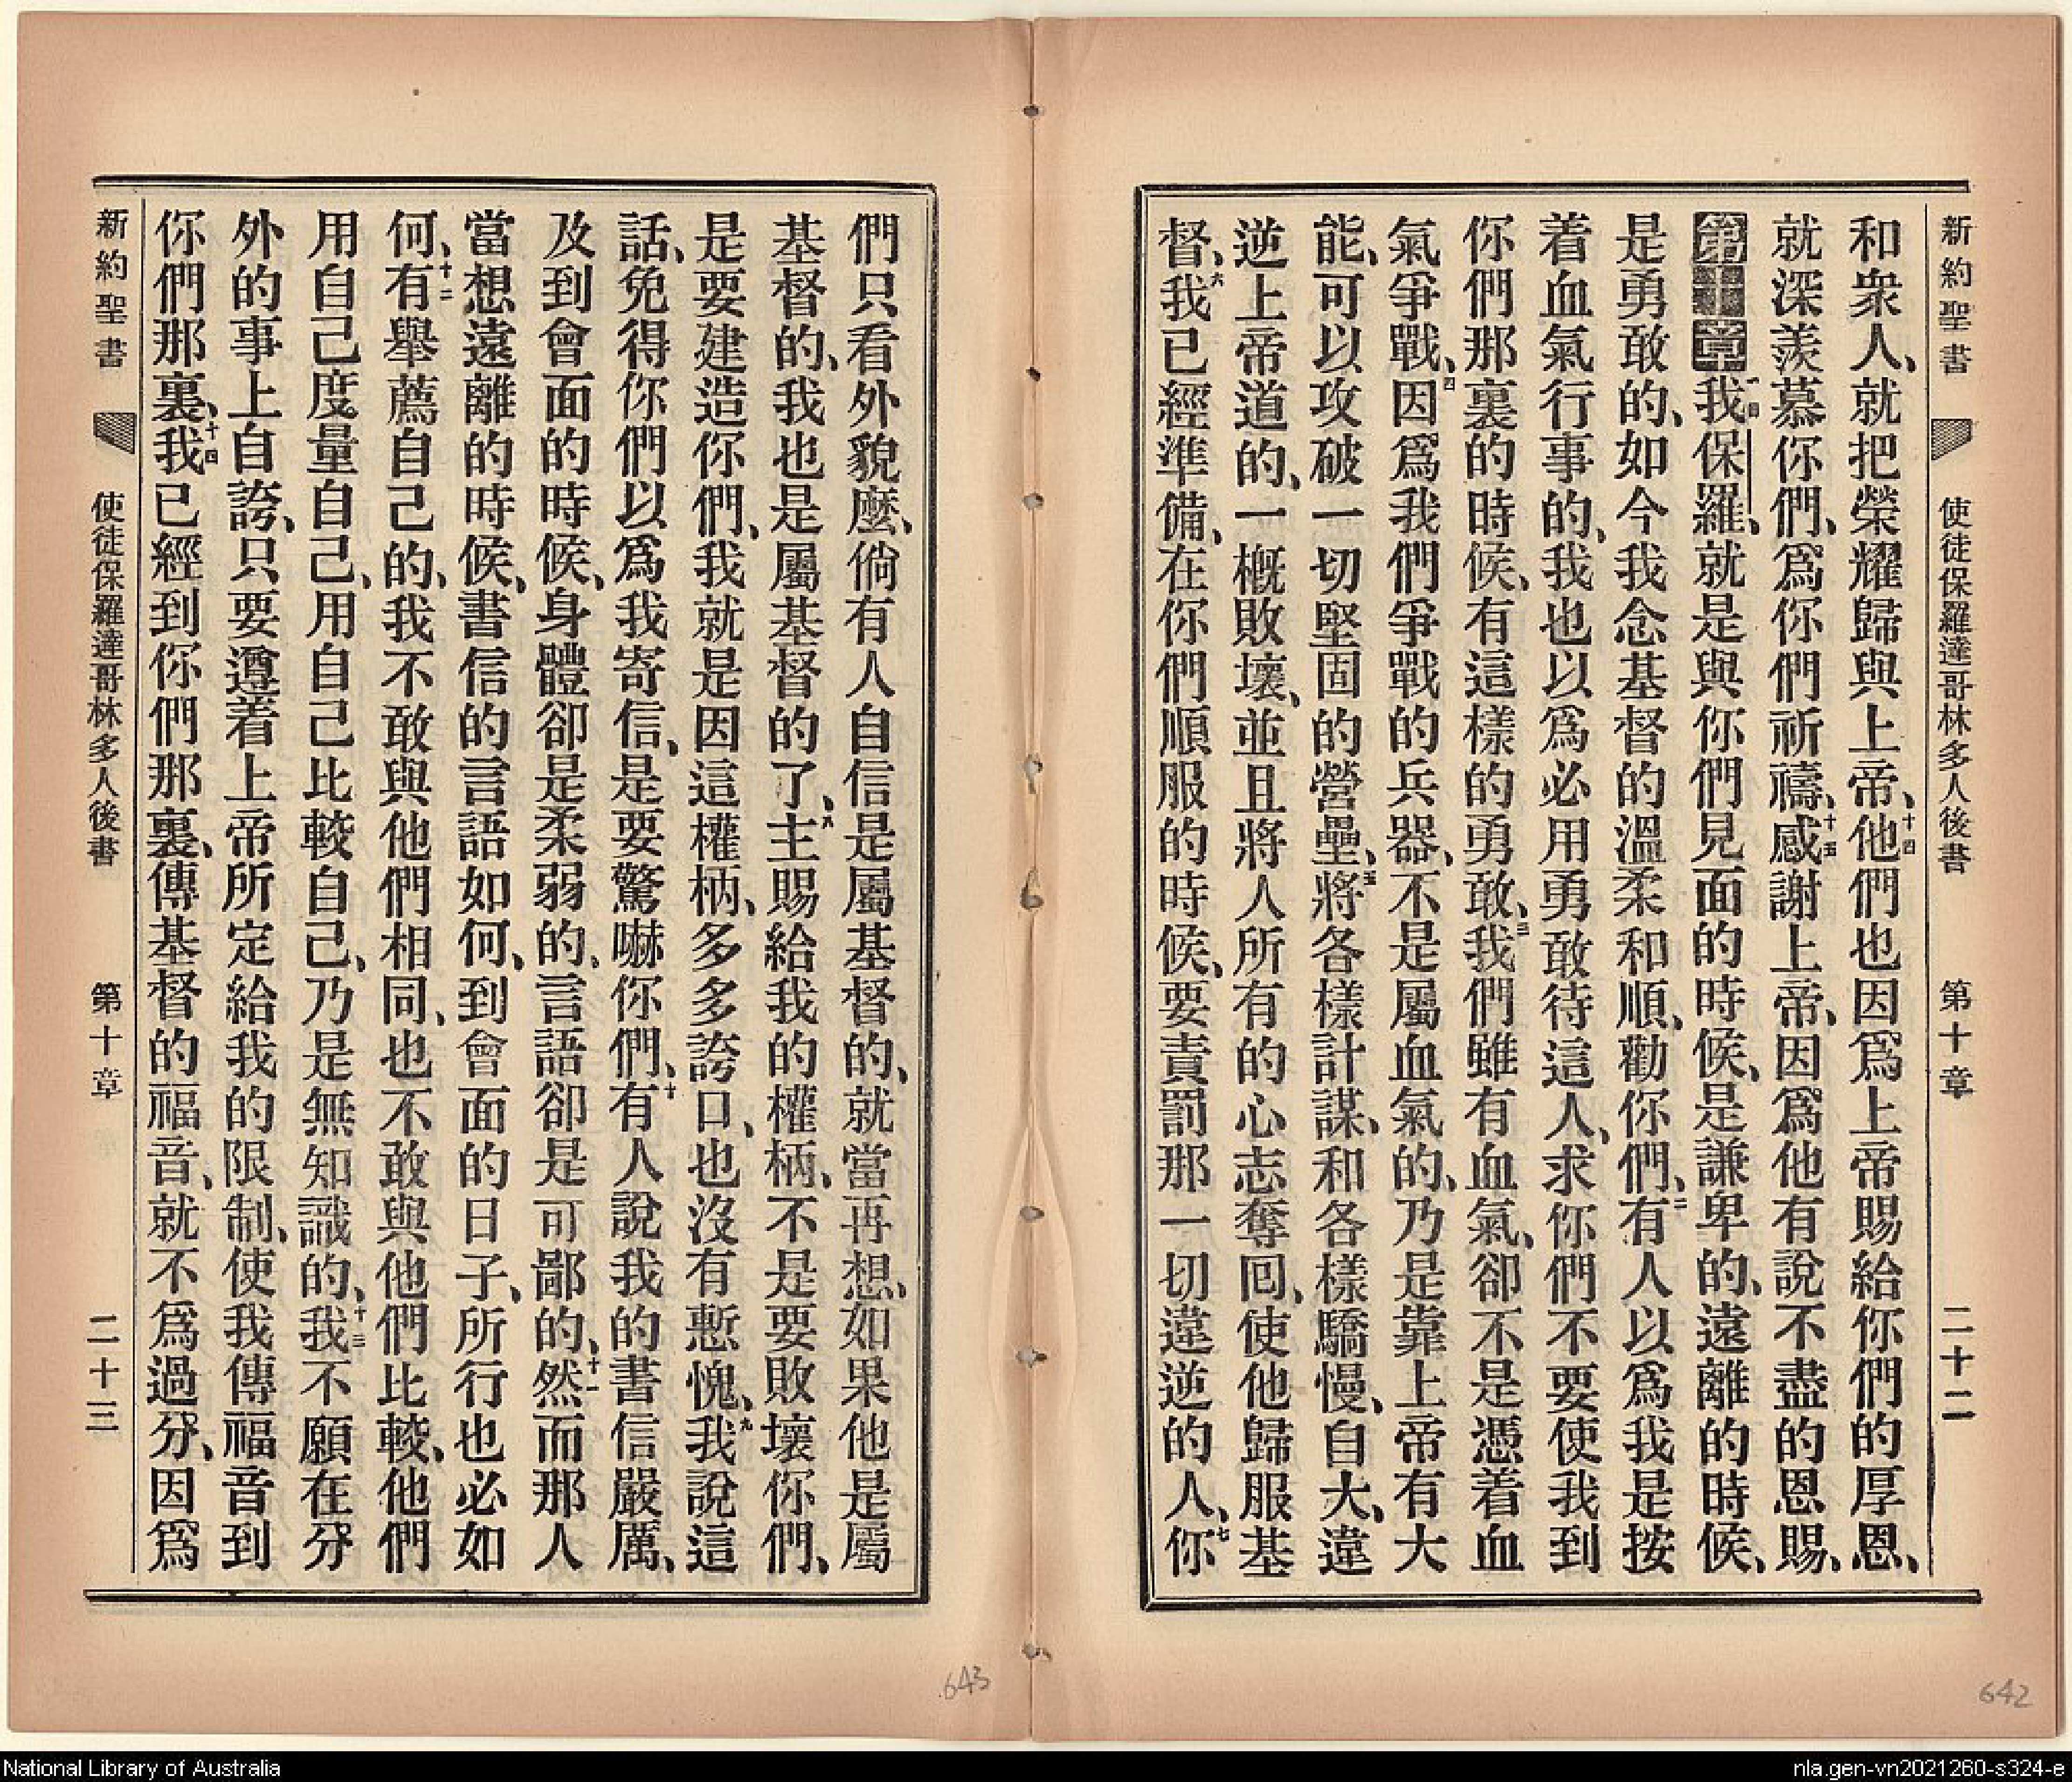 新約聖書 使徒保羅達哥林多人後書 第十章 二十二
和衆人、就把榮耀歸與上帝、十四他們也因爲上帝賜給你們的厚恩、
就深羨慕你們、爲你們祈禱、十五感謝上帝、因爲他有說不盡的恩賜、
第十章一我保羅、就是與你們見面的時候、是謙卑的、遠離的時候、
是勇敢的、如今我念基督的溫柔和順、勸你們、二有人以爲我是按
着血氣行事的、我也以爲必用勇敢待這人、求你們不要使我到
你們那裏的時候、有這樣的勇敢、三我們雖有血氣、卻不是憑着血
氣爭戰、四因爲我們爭戰的兵器、不是屬血氣的、乃是靠上帝有大
能、可以攻破一切堅固的營壘、五將各樣計謀、和各樣驕慢、自大、違
逆上帝道的、一槪敗壞、並且將人所有的心志奪回、使他歸服基
督、六我已經準備、在你們順服的時候、要責罰那一切違逆的人、七你
們只看外貌麼、倘有人自信是屬基督的、就當再想、如果他是屬
基督的、我也是屬基督的了、八主賜給我的權柄、不是要敗壞你們、
是要建造你們、我就是因這權柄、多多誇口、也沒有慙愧、九我說這
話、免得你們以爲我寄信、是要驚嚇你們、十有人說我的書信嚴厲、
及到會面的時候、身體卻是柔弱的、言語卻是可鄙的、十一然而那人
當想遠離的時候、書信的言語如何、到會面的日子、所行也必如
何、十二有舉薦自己的、我不敢與他們相同、也不敢與他們比較、他們
用自己度量自己、用自己比較自己、乃是無知識的、十三我不願在分
外的事上自誇、只要遵着上帝所定給我的限制、使我傳福音到
你們那裏、十四我已經到你們那裏、傳基督的福音、就不爲過分、因爲
新約聖書 使徒保羅達哥林多人後書 第十章 二十三
643
642
National Library of Australia
nla.gen-vn2021260-s324-e